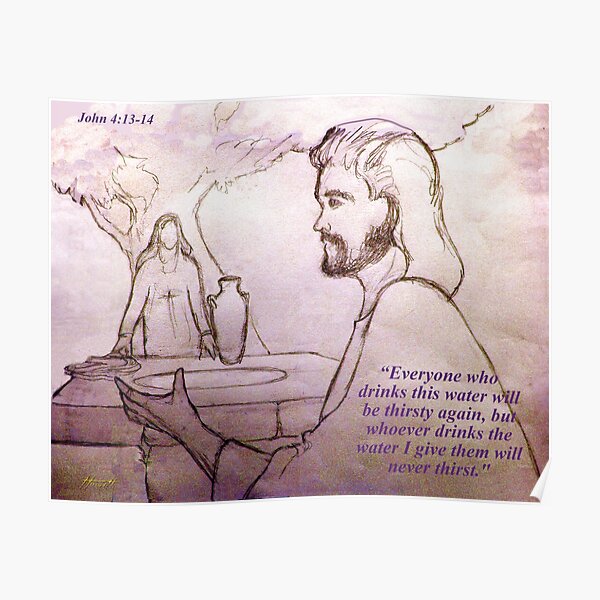 John 4:13-14
“Everyone who
drinks this water will
be thirsty again, but
whoever drinks the
water I give them will
never thirst."